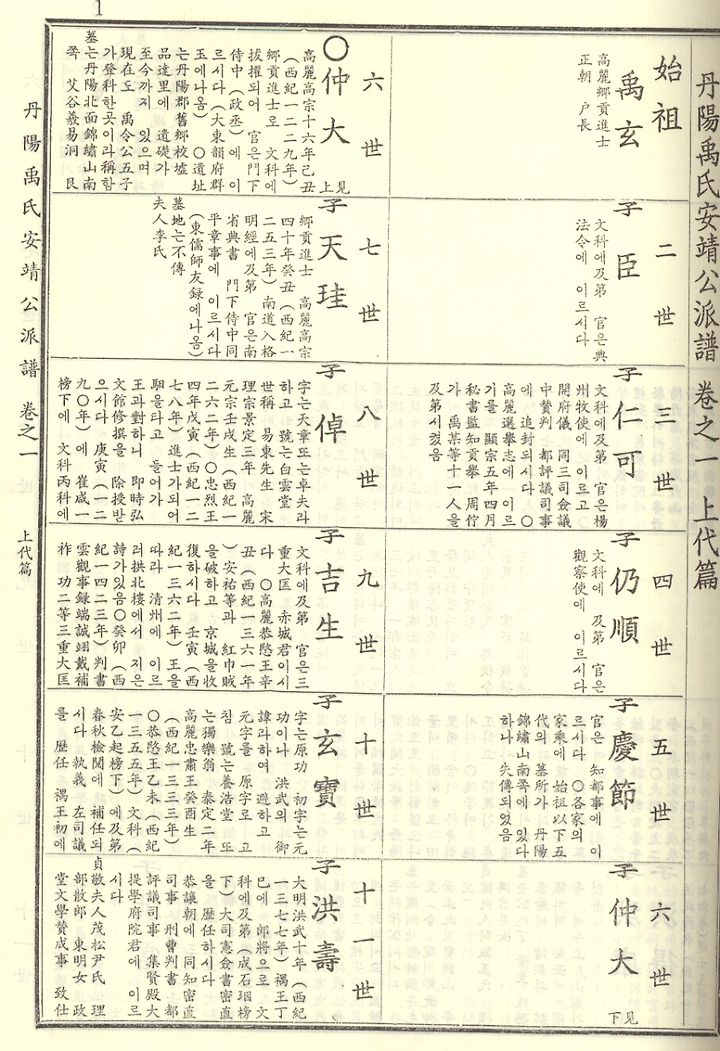 1
丹陽禹氏安靖公派譜 卷之一 上代篇
始祖
禹玄
高麗鄕貢進士
正朝 戶長
二世
子 臣
文科에及第 官은典
法令에 이르시다
三世
子 仁可
文科에及第 官은楊
州牧使에 이르고
開府儀 同三司僉議
中贊判 都評議司事
에 追封되시다 〇
高麗選擧志에 이르
기를 顯宗五年四月
秘書監知貢擧 周佇
가 禹某等十一人을
及第시켰음
四世
子 仍順
文科에 及第 官은
觀察使에 이르시다
五世
子 慶節
官은 知都事에 이
르시다 〇各家의
家乘에 始祖以下五
代의 墓所가 丹陽
錦繡山南쪽에 있다
하나 失傳되었음
六世
子 仲大
下見
六世
〇仲大
上見
高麗高宗十六年己丑
(西紀一二二九年)
鄕貢進士로 文科에
拔擢되어 官은門下
侍中(政丞)에 이
르시다(大東韻府群
玉에나옴) 〇遺址
는丹陽郡舊鄕校墟
品達里에 遺礎가
至今까지 있으며
現在도 禹令公五子
가登科한곳이라稱함
墓는丹陽北面錦繡山南
쪽 艾谷羲易洞 艮
七世
子 天珪
鄕貢進士 高麗高宗
四十年癸丑(西紀一
二五三年) 南道入格
明經에及第 官은南
省典書 門下侍中同
平章事에 이르시다
(東儒師友錄에나옴)
墓地는不傳
夫人李氏
八世
子 倬
字는天章또는卓夫라
하고 號는白雲堂
世稱 易東先生 宋
理宗景定三年 高麗
元宗壬戌生(西紀一
二六二年)〇忠烈王
四年戊寅(西紀一二
七八年)進士가되어
馹을타고 들어가
王과對하니 即時弘
文館修撰을 除授받
으시다 庚寅(一二
九〇年)에 崔咸一
榜下에 文科丙科에
九世
子 吉生
文科에及第 官은三
重大匡 赤城君이시
다 〇高麗恭愍王辛
丑(西紀一三六一年
)安祐等과 紅巾賊
을破하고 京城을收
復하시다 壬寅(西
紀一三六二年)王을
따라 淸州에 이르
러拱北樓에서 지은
詩가있음〇癸卯(西
紀一四二三年)判書
雲觀事錄端誠翊戴補
祚 功二等三重大匡
十世
子 玄寶
字는原功 初字는元
功이나 洪武의 御
諱라하여 避하고
元字를 原字로 고
침 號는養浩堂 또
는獨樂翁 泰定二年
高麗忠肅王癸酉生
(西紀一三三三年)
〇恭愍王乙未(西紀
一三五五年)文科(
安乙起榜下)에及第
春秋檢閱에 補任되
시다 執義 左司議
를 歷任 禑王初에
十一世
子 洪壽
大明洪武十年(西紀
一三七七年)禑王丁
巳에 郎將으로 文
科에及第(成石珚榜
下)大司憲僉書密直
을 歷任하시다
恭讓朝에 同知密直
司事 刑曹判書 都
評議司事 集賢殿大
提學府院君에 이르
시다
貞敬夫人茂松尹氏 理
部散郎 東明女 政
堂文學贊成事 致仕
丹陽禹氏安靖公派譜 卷之一
上代篇